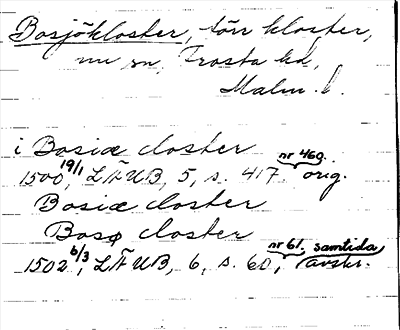 Bosjökloster, förr kloster,
nu sn, Frosta hd,
Malm. l.
i Bosiæ closter
1500 19/1, LÄUB, 5, s. 417. nr 460. orig.
Bosiæ closter
Bosø closter
1502 6/3, LÄUB, 6, s. 60, nr 61. samtida avskr.